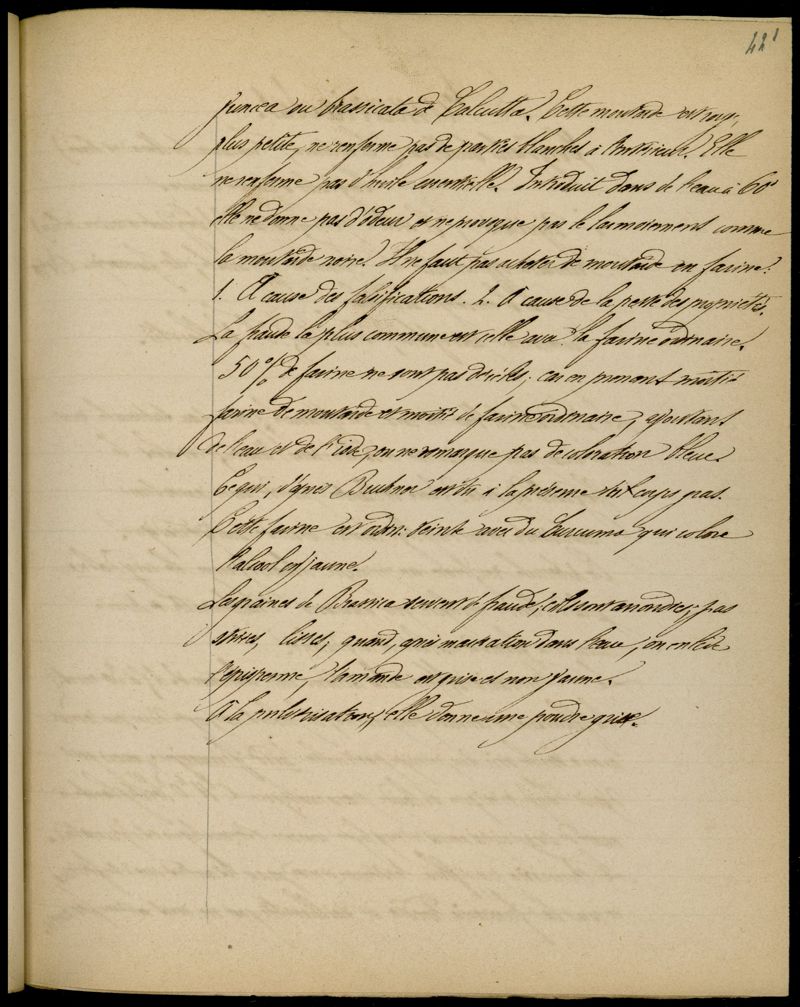 421
juncea ou brassicata de Calcutta. Cette moutarde est roug,
plus petite, ne renferme pas de parties blanches à l'intérieur. Elle
ne renferme pas d'huile essentielle. Introduit dans de l'eau à 60°
elle ne donne pas d'odeur et ne provoque pas le larmoiement comme
la moutarde noire. Il ne faut pas acheter de moutarde en farine:
1. A cause des falsifications. 2. A cause de la perte des propriétés.
La fraude la plus commune est celle avec la farine ordinaire.
50% de farine ne sont pas décelés; car en prenant moitié
farine de moutarde et moitié de farine ordinaire, ajoutant
de l'eau et de l'iode, on ne remarque pas de coloration bleue.
Ce qui, d'après Buchner est dû à la présence
Cette farine est ordin. teinte avec du Curcuma qui colore
l'alcool en jaune.
Les graines de Brassica servent à frauder; elles sont arrondies, pas
striées, lisses, quand, après macération dans l'eau, on enlève
l'épisperme, l'amande est grise et non jaune.
A la pulvérisation, elle donne une poudre grise.